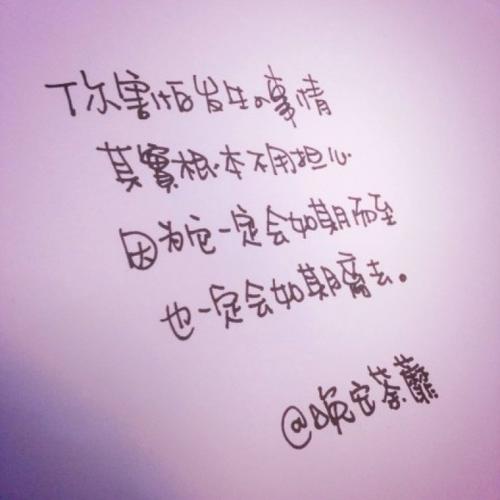 你害怕发生的事情
其實根本不用担心
因为它一定会如期而至
也一定会如期离去。
@晚安荼蘼